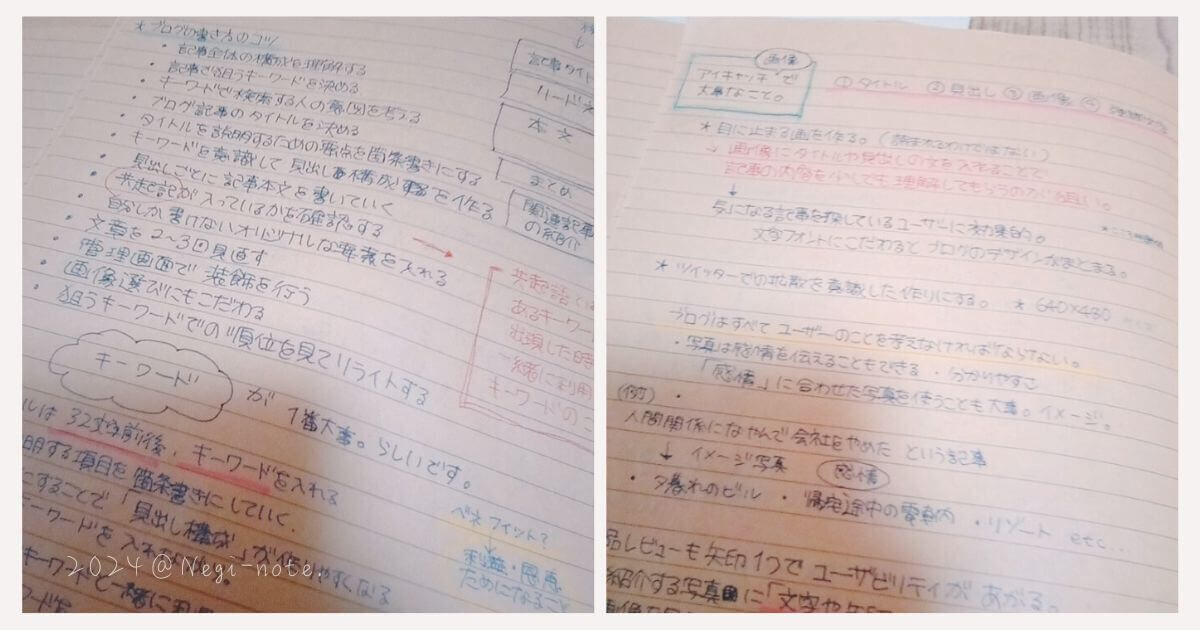 * ブログの書き方のコツ
・記事全体の構成を理解する
・記事で狙うキーワードを決める
・キーワードで検索する人の意図を考える
・ブログ記事のタイトルを決める
・タイトルを説明するための要点を箇条書きにする
・キーワードを意識して見出し構成を作る
・見出しごとに記事本文を書いていく
・共起語が入っているかを確認する
・自分しか書けないオリジナルな要素を入れる
・文章を2~3回見直す
・管理画面で装飾を行う
・画像選びにもこだわる
・狙うキーワードでの順位を見てリライトする
記事タイト
リード文
本文
まとめ
関連記事
の紹介
共起語
あるキーワー
出現した時
一緒に利用
キーワードの
キーワード が 1番大事。らしいです。
32文字前後、キーワードを入れる
明する項目を箇条書きにしていく。
にすることで「見出し構成」が
キーワードを入れ
やすくなる
キーワードと一緒に
ベネフィット?
↓
利益・恩恵
ためになること
2024@Negi-note.
画像
アイキャッチで
大事なこと。
① タイトル ② 見出し ③ 画像 ④
* 目に止まる画を作る。(読まれるわけではない)
→ 画像にタイトルや見出しの文を入れることで
記事の内容を少しでも理解してもらうのが狙い。
↓
気になる記事を探しているユーザーに効果的。
文字フォントにこだわるとブログのデザインがまとまる。
* ツイッターでの拡散を意識した作りにする。 * 640×430
ブログはすべてユーザーのことを考えなければならない。
・写真は感情を伝えることもできる ・分かりやすさ
「感情」に合わせた写真を使うことも大事。イメージ。
(例)・
人間関係になやんで会社をやめた という記事
↓ イメージ写真 感情
・夕暮れのビル ・帰宅途中の電車内 ・リゾート etc...
品レビューも矢印1つでユーザビリティがあがる。
紹介する写真に「文字や